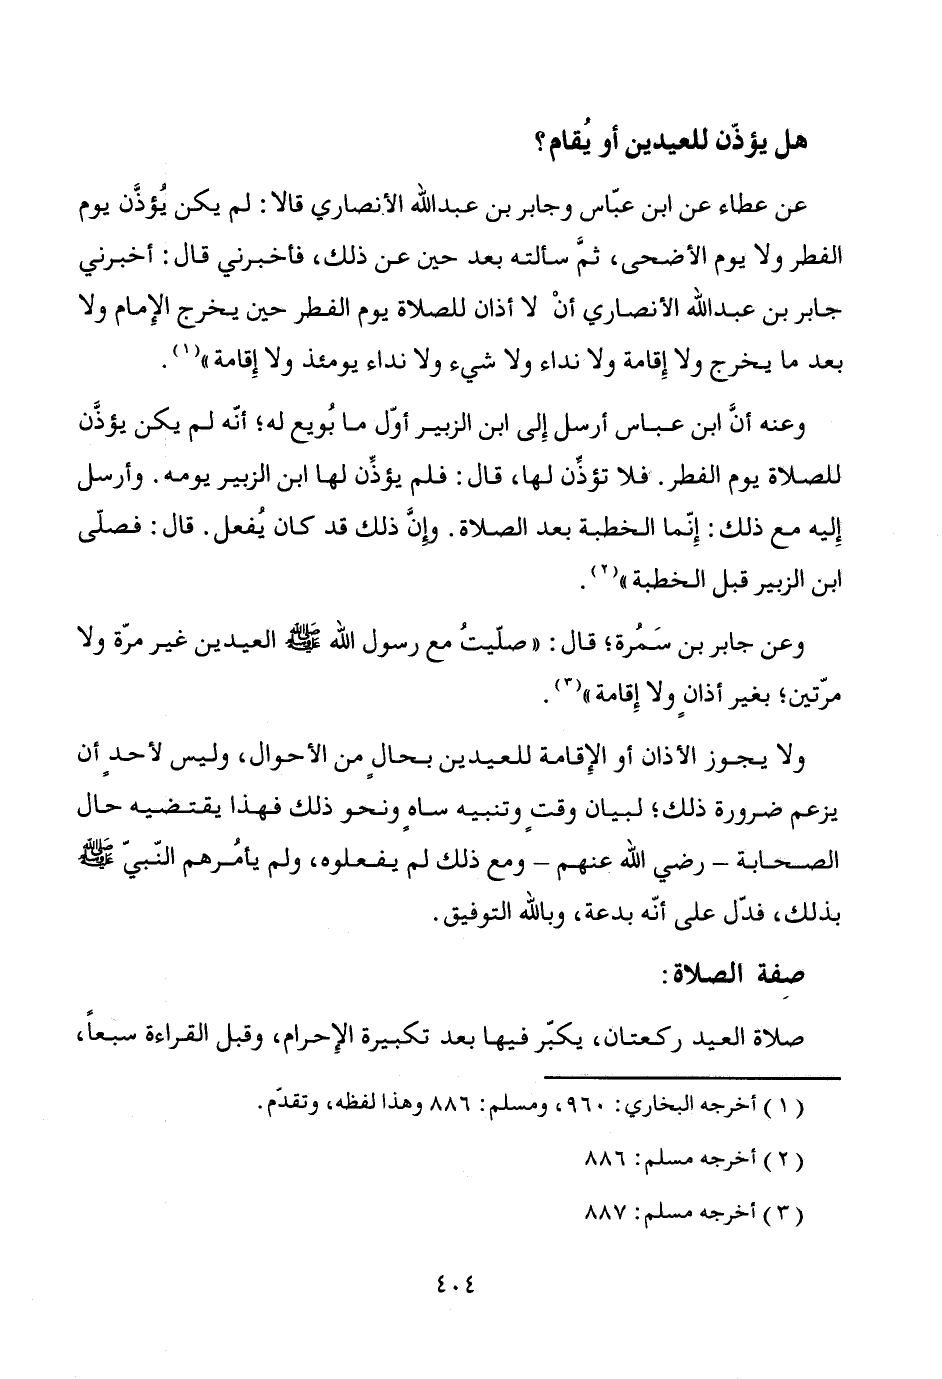 هل يؤذّن للعيدين أو يُقام؟
عن عطاء عن ابن عبّاس وجابر بن عبدالله الأنصاري قالا: لم يكن يُؤذَّن يوم
الفطر ولا يوم الأضحى، ثمَّ سألته بعد حين عن ذلك، فأخبرني قال: أخبرني
جابر بن عبدالله الأنصاري أنْ لا أذان للصلاة يوم الفطر حين يخرج الإمام ولا
بعد ما يخرج ولا إقامة ولا نداء ولا شيء ولا نداء يومئذ ولا إقامة»(١).
وعنه أنَّ ابن عباس أرسل إلى ابن الزبير أوّل ما بُويع له؛ أنّه لم يكن يؤذَّن
للصلاة يوم الفطر. فلا تؤذِّن لها، قال: فلم يؤذِّن لها ابن الزبير يومه. وأرسل
إليه مع ذلك: إنّما الخطبة بعد الصلاة. وإنَّ ذلك قد كان يُفعل. قال: فصلّى
ابن الزبير قبل الخطبة»(٢).
وعن جابر بن سَمُرة؛ قال: «صلّيتُ مع رسول الله ﷺ العيدين غير مرّة ولا
مرّتين؛ بغير أذانٍ ولا إقامة»(٣).
ولا يجوز الأذان أو الإقامة للعيدين بحالٍ من الأحوال، وليس لأحدٍ أن
يزعم ضرورة ذلك؛ لبيان وقتٍ وتنبيه ساهٍ ونحو ذلك فهذا يقتضيه حال
الصحابة – رضي الله عنهم – ومع ذلك لم يفعلوه، ولم يأمُرهم النّبيّ ﷺ
بذلك، فدّل على أنّه بدعة، وبالله التوفيق.
صفة الصلاة:
صلاة العيد ركعتان، يكبّر فيها بعد تكبيرة الإحرام، وقبل القراءة سبعاً،
(١) أخرجه البخاري: ٩٦٠، ومسلم: ٨٨٦ وهذا لفظه، وتقدّم.
(٢) أخرجه مسلم: ٨٨٦
(٣) أخرجه مسلم: ٨٨٧
٤٠٤